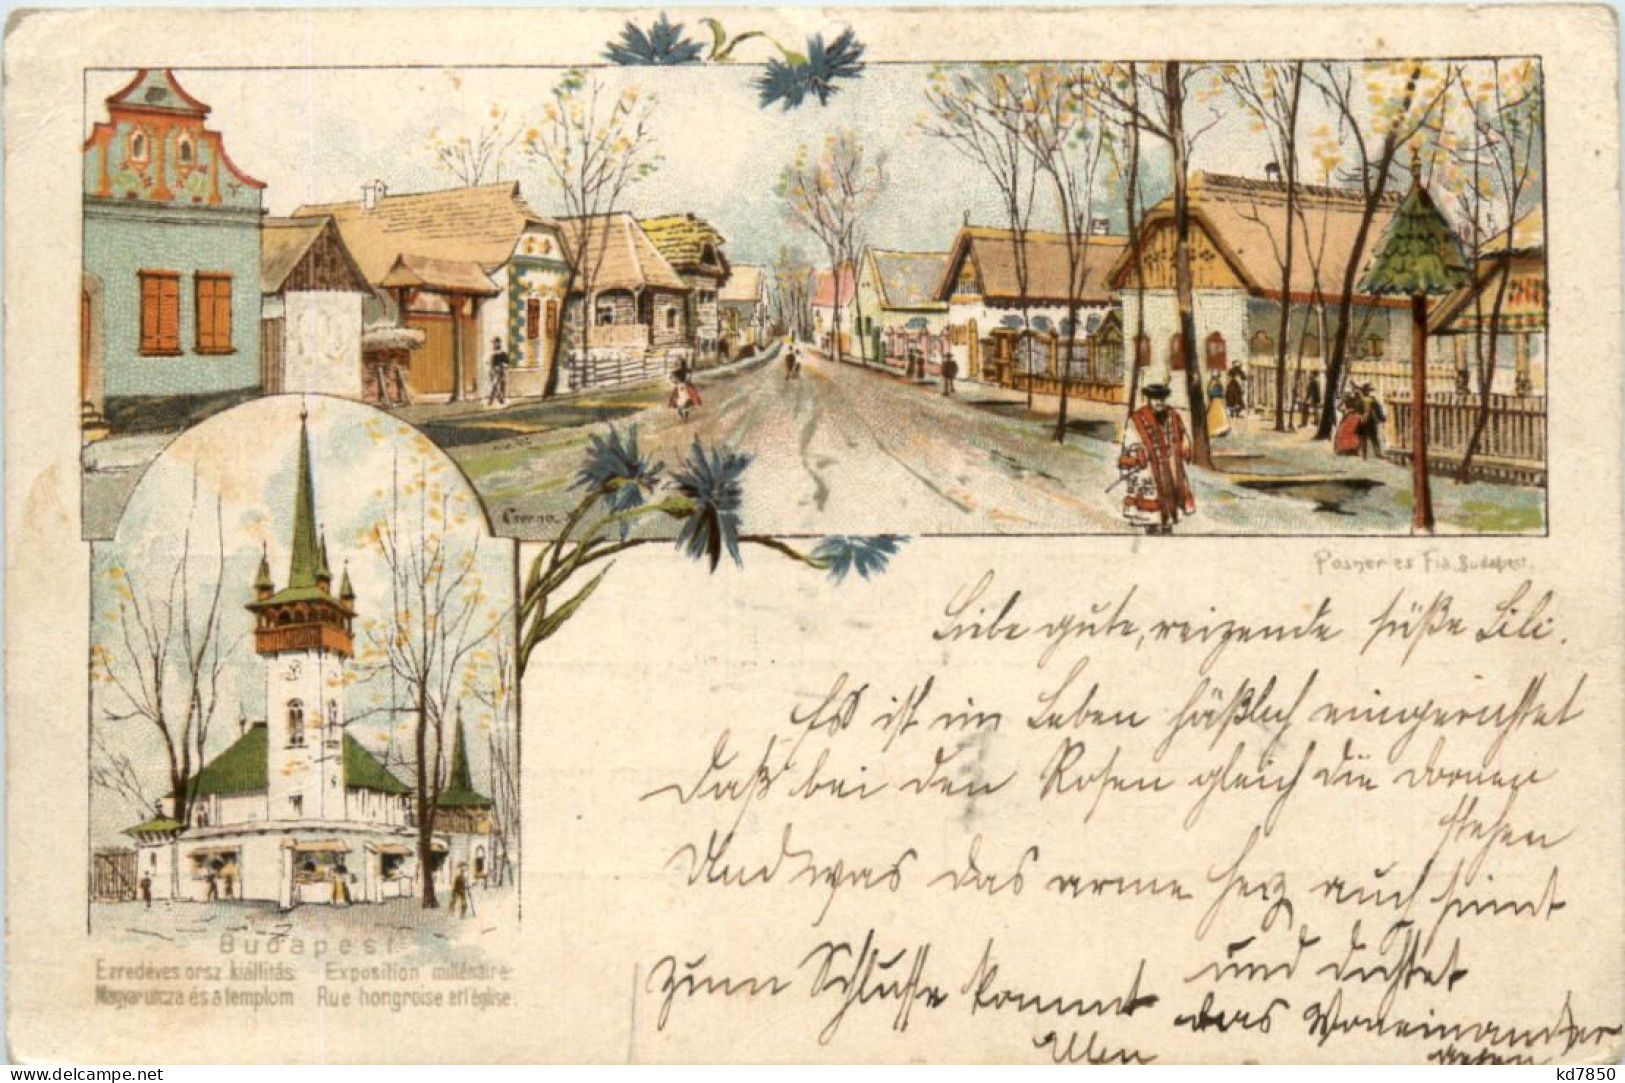 Czerna.
Posner és Fia, Budapest.
Budapest
Ezredéves orsz kiállítás. Exposition millénaire
Magyar utcza és a templom Rue hongroise et l'église.
Liebe gute, reizende süße Lili.
Es ist im Leben häßlich eingerichtet
Daß bei den Rosen gleich die Dornen
stehen
Und was das arme Herz auch sinnt
und dichtet
zum Schlusse kommt das Voneinander
gehen
kd7850